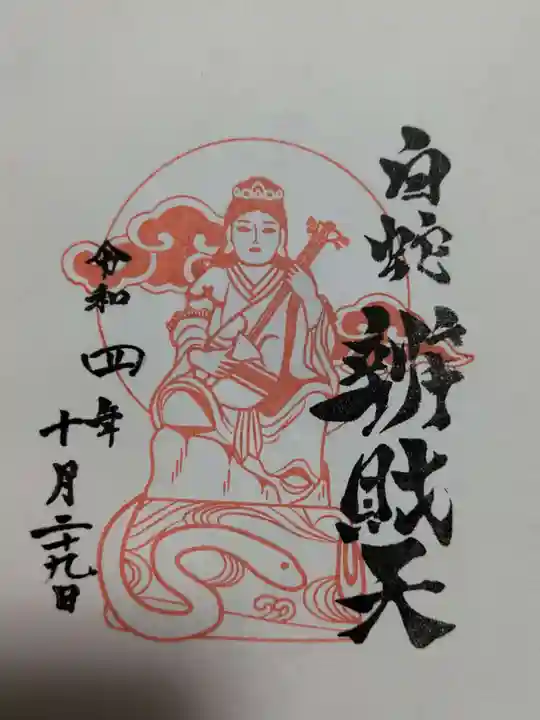 白蛇
辨財天
令和四年
十月二十九日